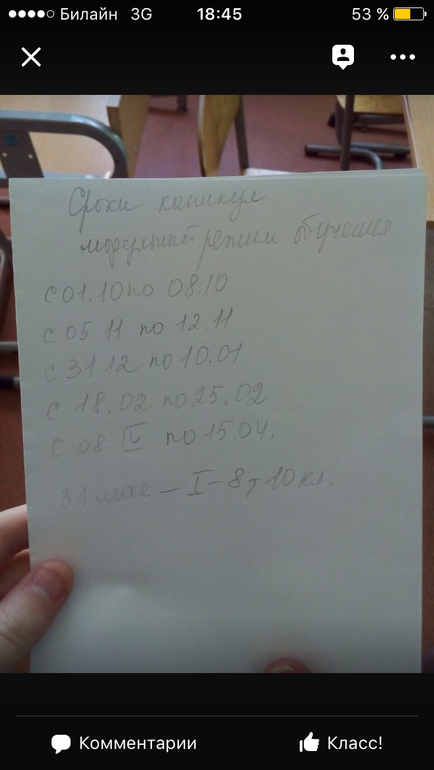 Билайн 3G 18:45 53 %
Сроки каникул
модульный режим обучения
с 01.10 по 08.10
с 05.11 по 12.11
с 31 12 по 10.01
с 18.02 по 25.02
с 08. IV по 15.04.
31 мая – I – 8, 10 кл.
Комментарии Класс!